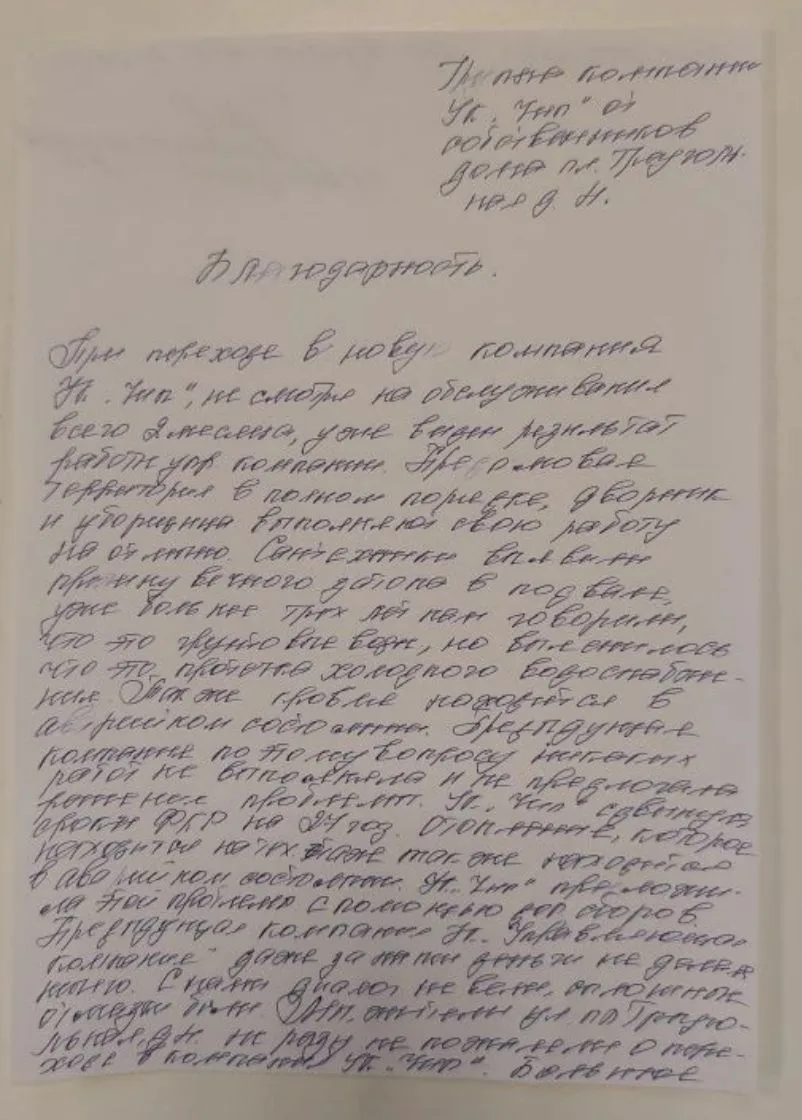 компании
Ук. "Чип" от
собственников
дома пл. Треуголь-
ная д. Н.
Благодарность.
При переходе в новую компания
Ук. "Чип", не смотря на обслуживания
всего 2 месяца, уже виден результат
работы упр компании. Придомовая
территория в полном порядке, дворник
и уборщица выполняют свою работу
на отлично. Сантехники выявили
причину вечного затопа в подвале,
уже больнее трех лет нам говорили,
что это грунтовые воды, но выяснилось
что это протечка холодного водоснабже-
ния. Также кровля находится в
аварийном состоянии. Предыдущая
компания по этому вопросу никаких
работ не выполняла и не предлогала
решения проблемы. Ук. "Чип" сдвинула
сроки ФКР на 24 год. Отопление, которое
находится на тех этаже также находится
в аварийном состоянии. Ук. "Чип"
этой проблемы с помощью доп сборов
Предыдущая компания Ук. "Управляющая
компания" даже за наши деньги не делала
ничего. С нами диалог не вели, сплошные
отмазки были. Мы, жители ул. пл Треуго-
льная, д.Н. ни разу не пожалели о пере-
ходе в компания Ук. "Чип". Большое